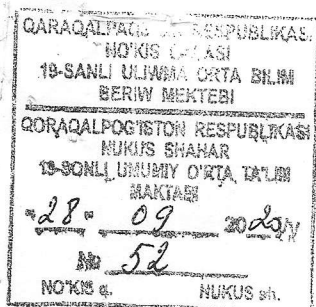 QARAQALPAQ RESPUBLIKASI
NO'KIS QALASI
19-SANLI ULIWMA ORTA BILIM
BERIW MEKTEBI
QORAQALPOG'ISTON RESPUBLIKASI
NUKUS SHAHAR
19-SONLI UMUMIY O'RTA TA'LIM
MAKTABI
"28" 09 2020/y
№ 52
NO'KIS q. NUKUS sh.